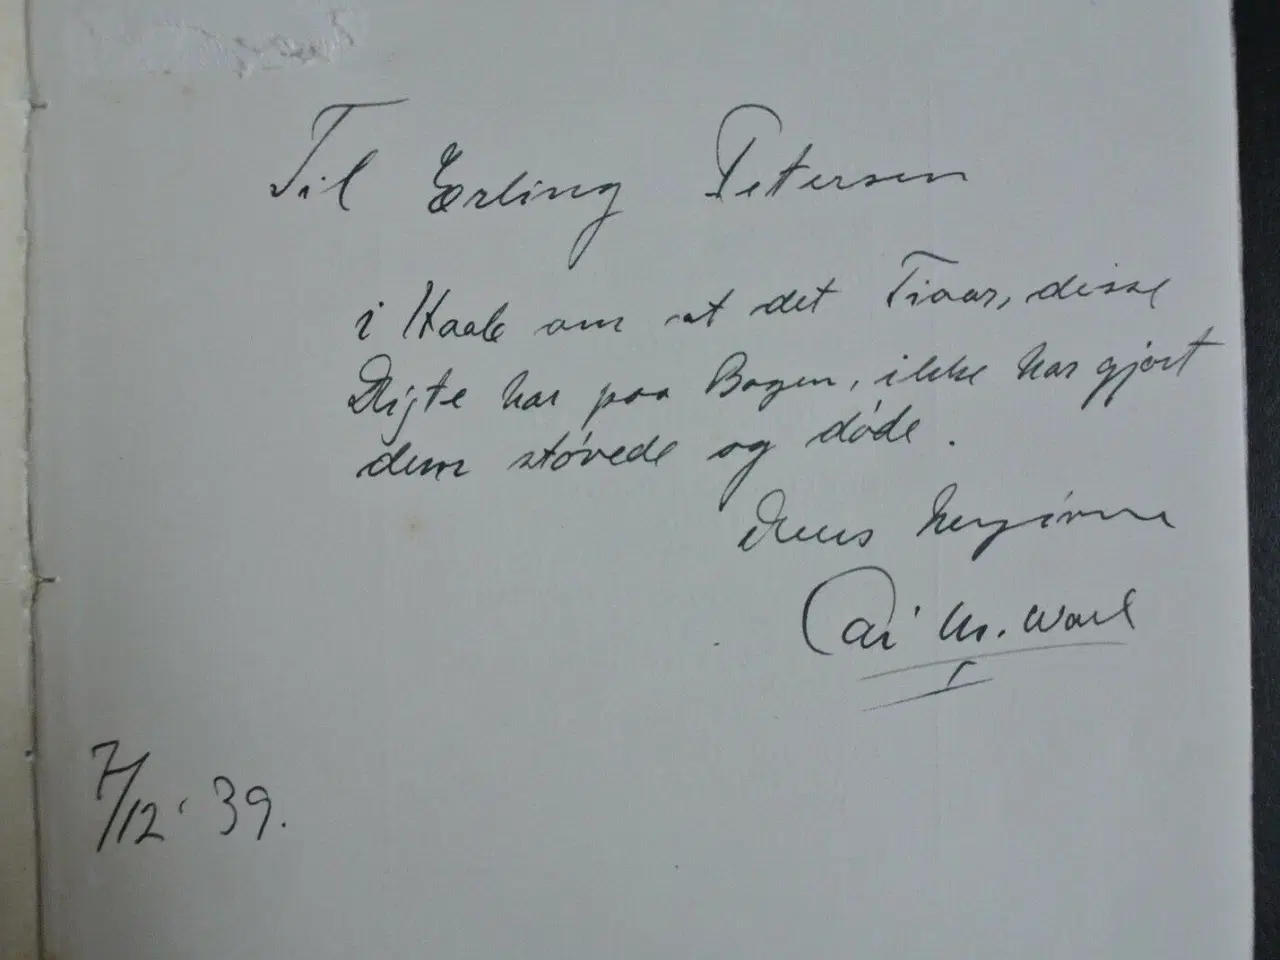 Til Erling Petersen
i Haab om at det Tiaar, disse
Digte har paa Bagen, ikke har gjort
dem støvede og døde.
Deres hengivne
Cai M. Woel
7/12 '39.